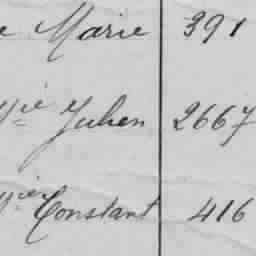 e Marie 391
Mie Julien 2667
Mier Constant 416